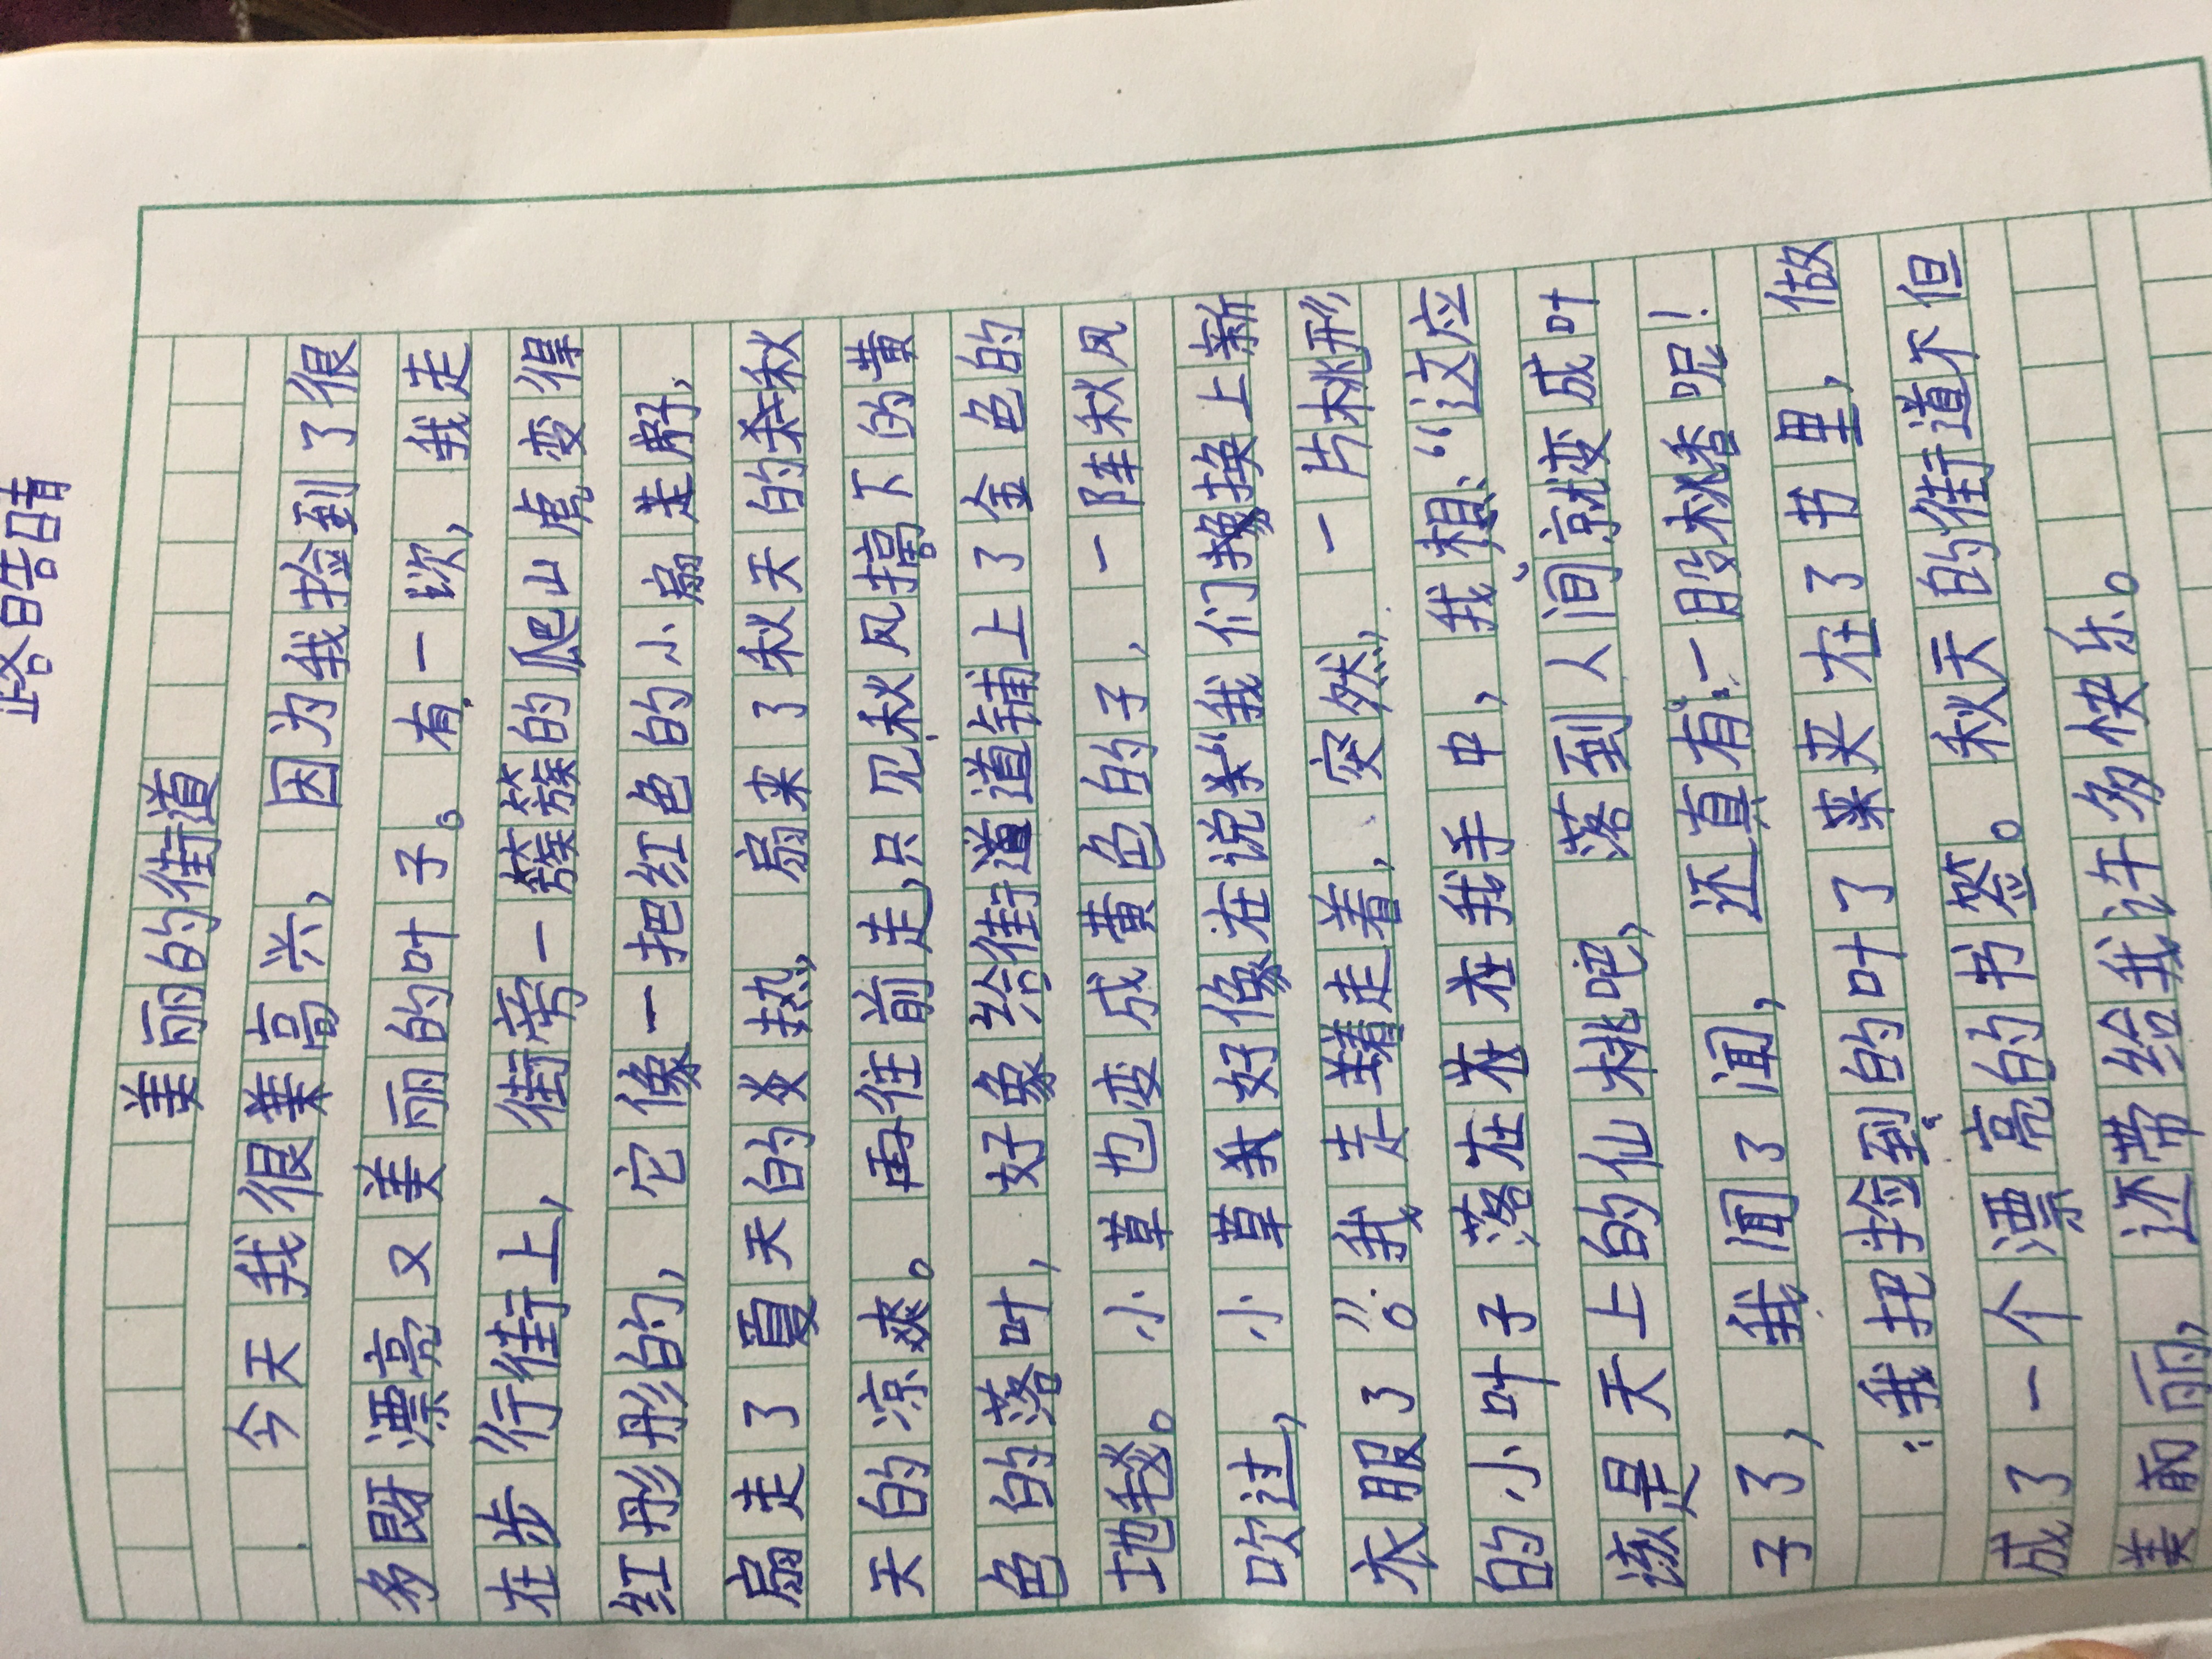 路皓晴
美丽的街道
今天我很美高兴，因为我捡到了很
多既漂亮又美丽的叶子。有一次，我走
在步行街上，街旁一簇簇的爬山虎变得
红彤彤的，它像一把红色的小扇走
扇走了夏天的炎热，扇来了秋天的秋
天的凉爽。再往前走，只见秋风摘下的黄
色的落叶，好象给街道道铺上了金色的
地毯。小草也变成黄色的了，一阵秋风
吹过，小草我好像在说“我们换上新
衣服了”。我走着走着，突然，一片桃形
的小叶子落在在在在我手中，我想：“这应
该是天上的仙桃吧，落到人间就变成叶
子了，我闻了闻，还真有一股桃香呢！
我把捡到的叶子来夹在了书里，做
成了一个漂亮的书签。秋天的街道不但
美丽，还带给我许多快乐。